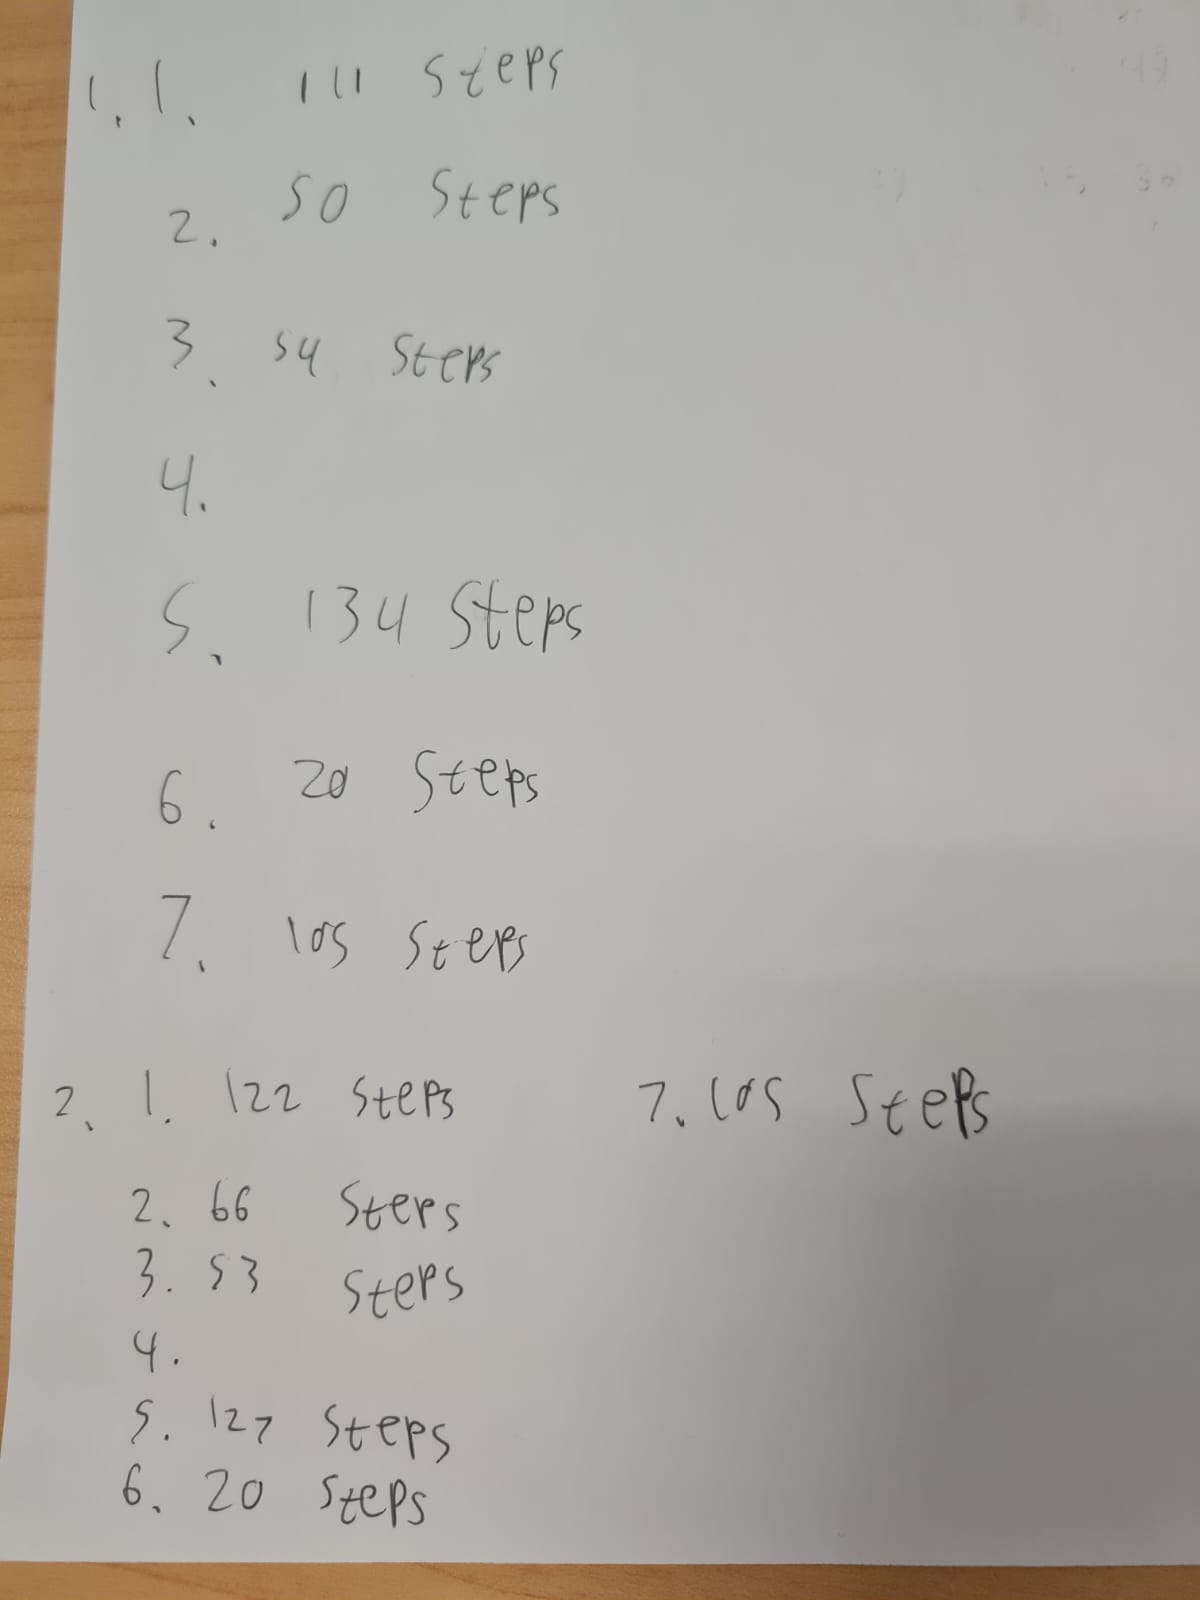 1. 1. 111 steps
2. 50 Steps
3. 54 Steps
4.
5. 134 Steps
6. 20 Steps
7. 105 Steps
2. 1. 122 Steps
2. 66 Steps
3. 53 Steps
4.
5. 127 Steps
6. 20 Steps
7. 105 Steps